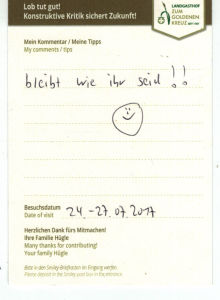 Lob tut gut!
Konstruktive Kritik sichert Zukunft!
LANDGASTHOF
ZUM
GOLDENEN
KREUZ
Mein Kommentar / Meine Tipps
My comments / tips
bleibt wie ihr seid !!
Besuchsdatum
Date of visit
24.-27.07.2017
Herzlichen Dank fürs Mitmachen!
Ihre Familie Hügle
Many thanks for contributing!
Your family Hügle
Bitte in den Smiley-Briefkasten im Eingang werfen.
Please deposit in the Smiley post box in the entrance.